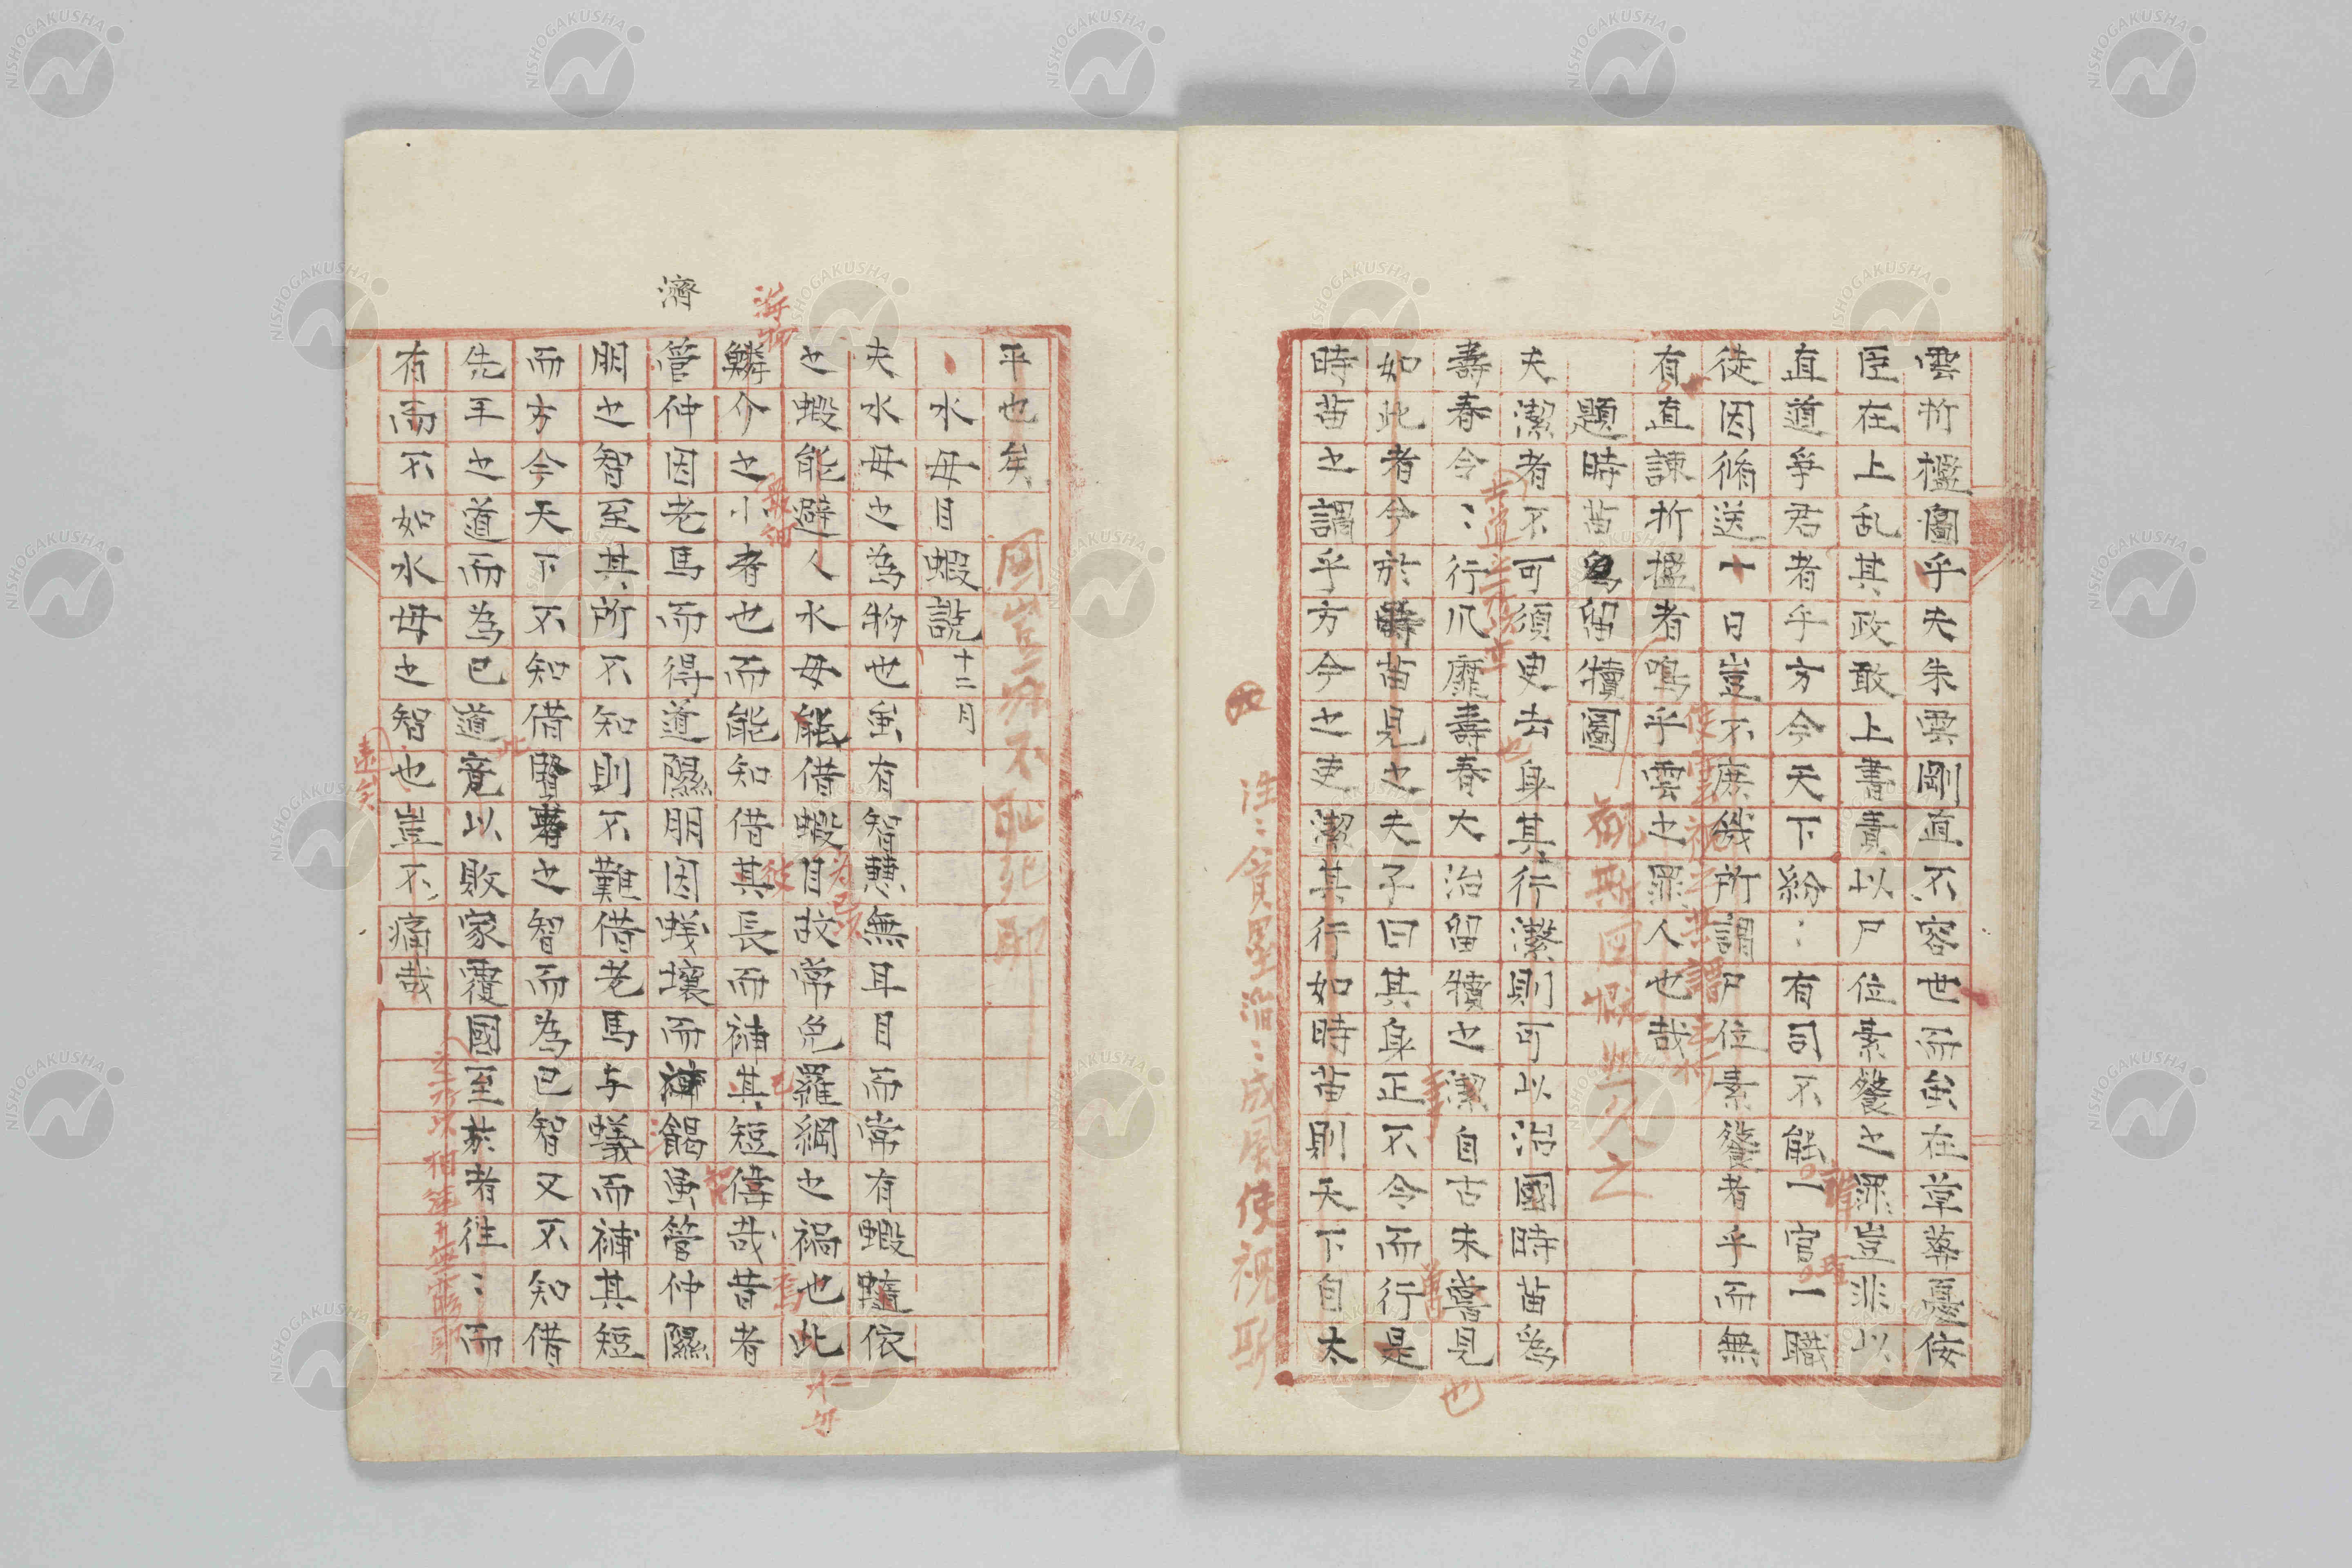 雲折檻圖乎夫朱雲剛直不容世而虽在草藥憂佞
臣在上乱其政敢上書責以尸位素餐之罪豈非以
直道爭君者乎方今天下紛〻有司不能一官一職
徒因脩送十日豈不庶幾所謂尸位素餐者乎而無
有直諌折檻者鳴乎雲之罪人也哉
題時苗留犢圖
夫潔者不可須臾去身其行潔則可以治國時苗爲
壽春令〻行爪靡壽春大治留犢之潔自古未嘗見
如此者今於時苗見之夫子曰其身正不令而行是
時苗之謂乎方今之吏潔其行如時苗則天下自太
平也矣
國豈
水母目蝦說十二月
夫水母之為物也虽有智慧無耳目而常有蝦隨依
之蝦能避人水母能借蝦目故常免羅網之禍也此
鱗介之小者也而能知借其長而補其短偉哉昔者
管仲因老馬而得道隰朋因蟻壤而濟餲虽管仲隰
朋之智至其所不知則不難借老馬与蟻而補其短
而方今天下不知借賢者之智而為已智又不知借
先王之道而為已道竟以敗家覆國至於者往〻而
有而不如水母之智也豈不痛哉
濟
海物
水母
也
NISHOGAKUSHA